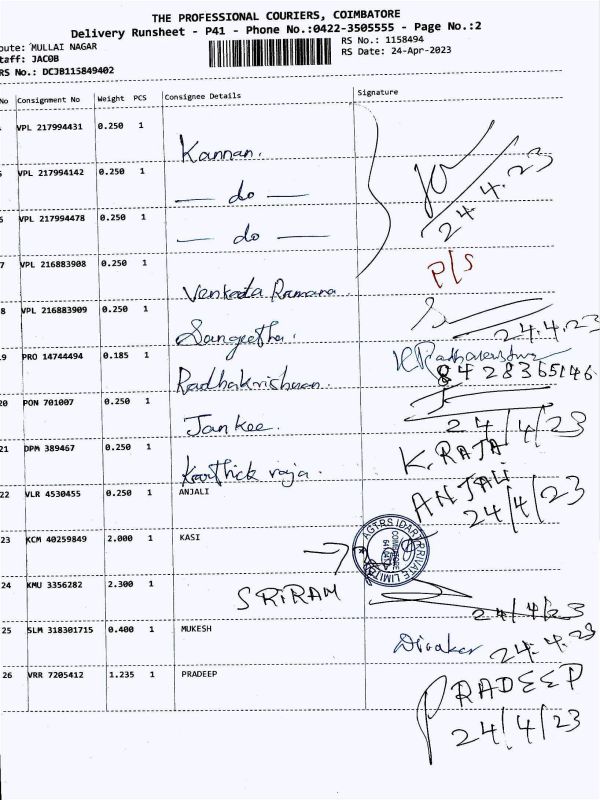 THE PROFESSIONAL COURIERS, COIMBATORE
Delivery Runsheet - P41 - Phone No.:0422-3505555 - Page No.:2
oute: MULLAI NAGAR
RS No.: 1158494
taff: JACOB
RS Date: 24-Apr-2023
RS No.: DCJB115849402
No Consignment No Weight PCS Consignee Details Signature
VPL 217994431 0.250 1 Kannan.
VPL 217994142 0.250 1 — do —
24.4.23
6 VPL 217994478 0.250 1 — do —
7 VPL 216883908 0.250 1 Venkata Ramana. P/S
8 VPL 216883909 0.250 1 Sangeetha. 24.4.23
19 PRO 14744494 0.185 1 Radhakrishnan. 8428365146
20 PON 701007 0.250 1 Jankee. 24/4/23
21 DPM 389467 0.250 1 Karthick raja. K.RAJA
22 VLR 4530455 0.250 1 ANJALI ANJALI
24/4/23
23 KCM 40259849 2.000 1 KASI
24 KMU 3356282 2.300 1 SRIRAM
24/4/23
25 SLM 318301715 0.400 1 MUKESH Divaker 24.4.23
26 VRR 7205412 1.235 1 PRADEEP PRADEEP
24/4/23